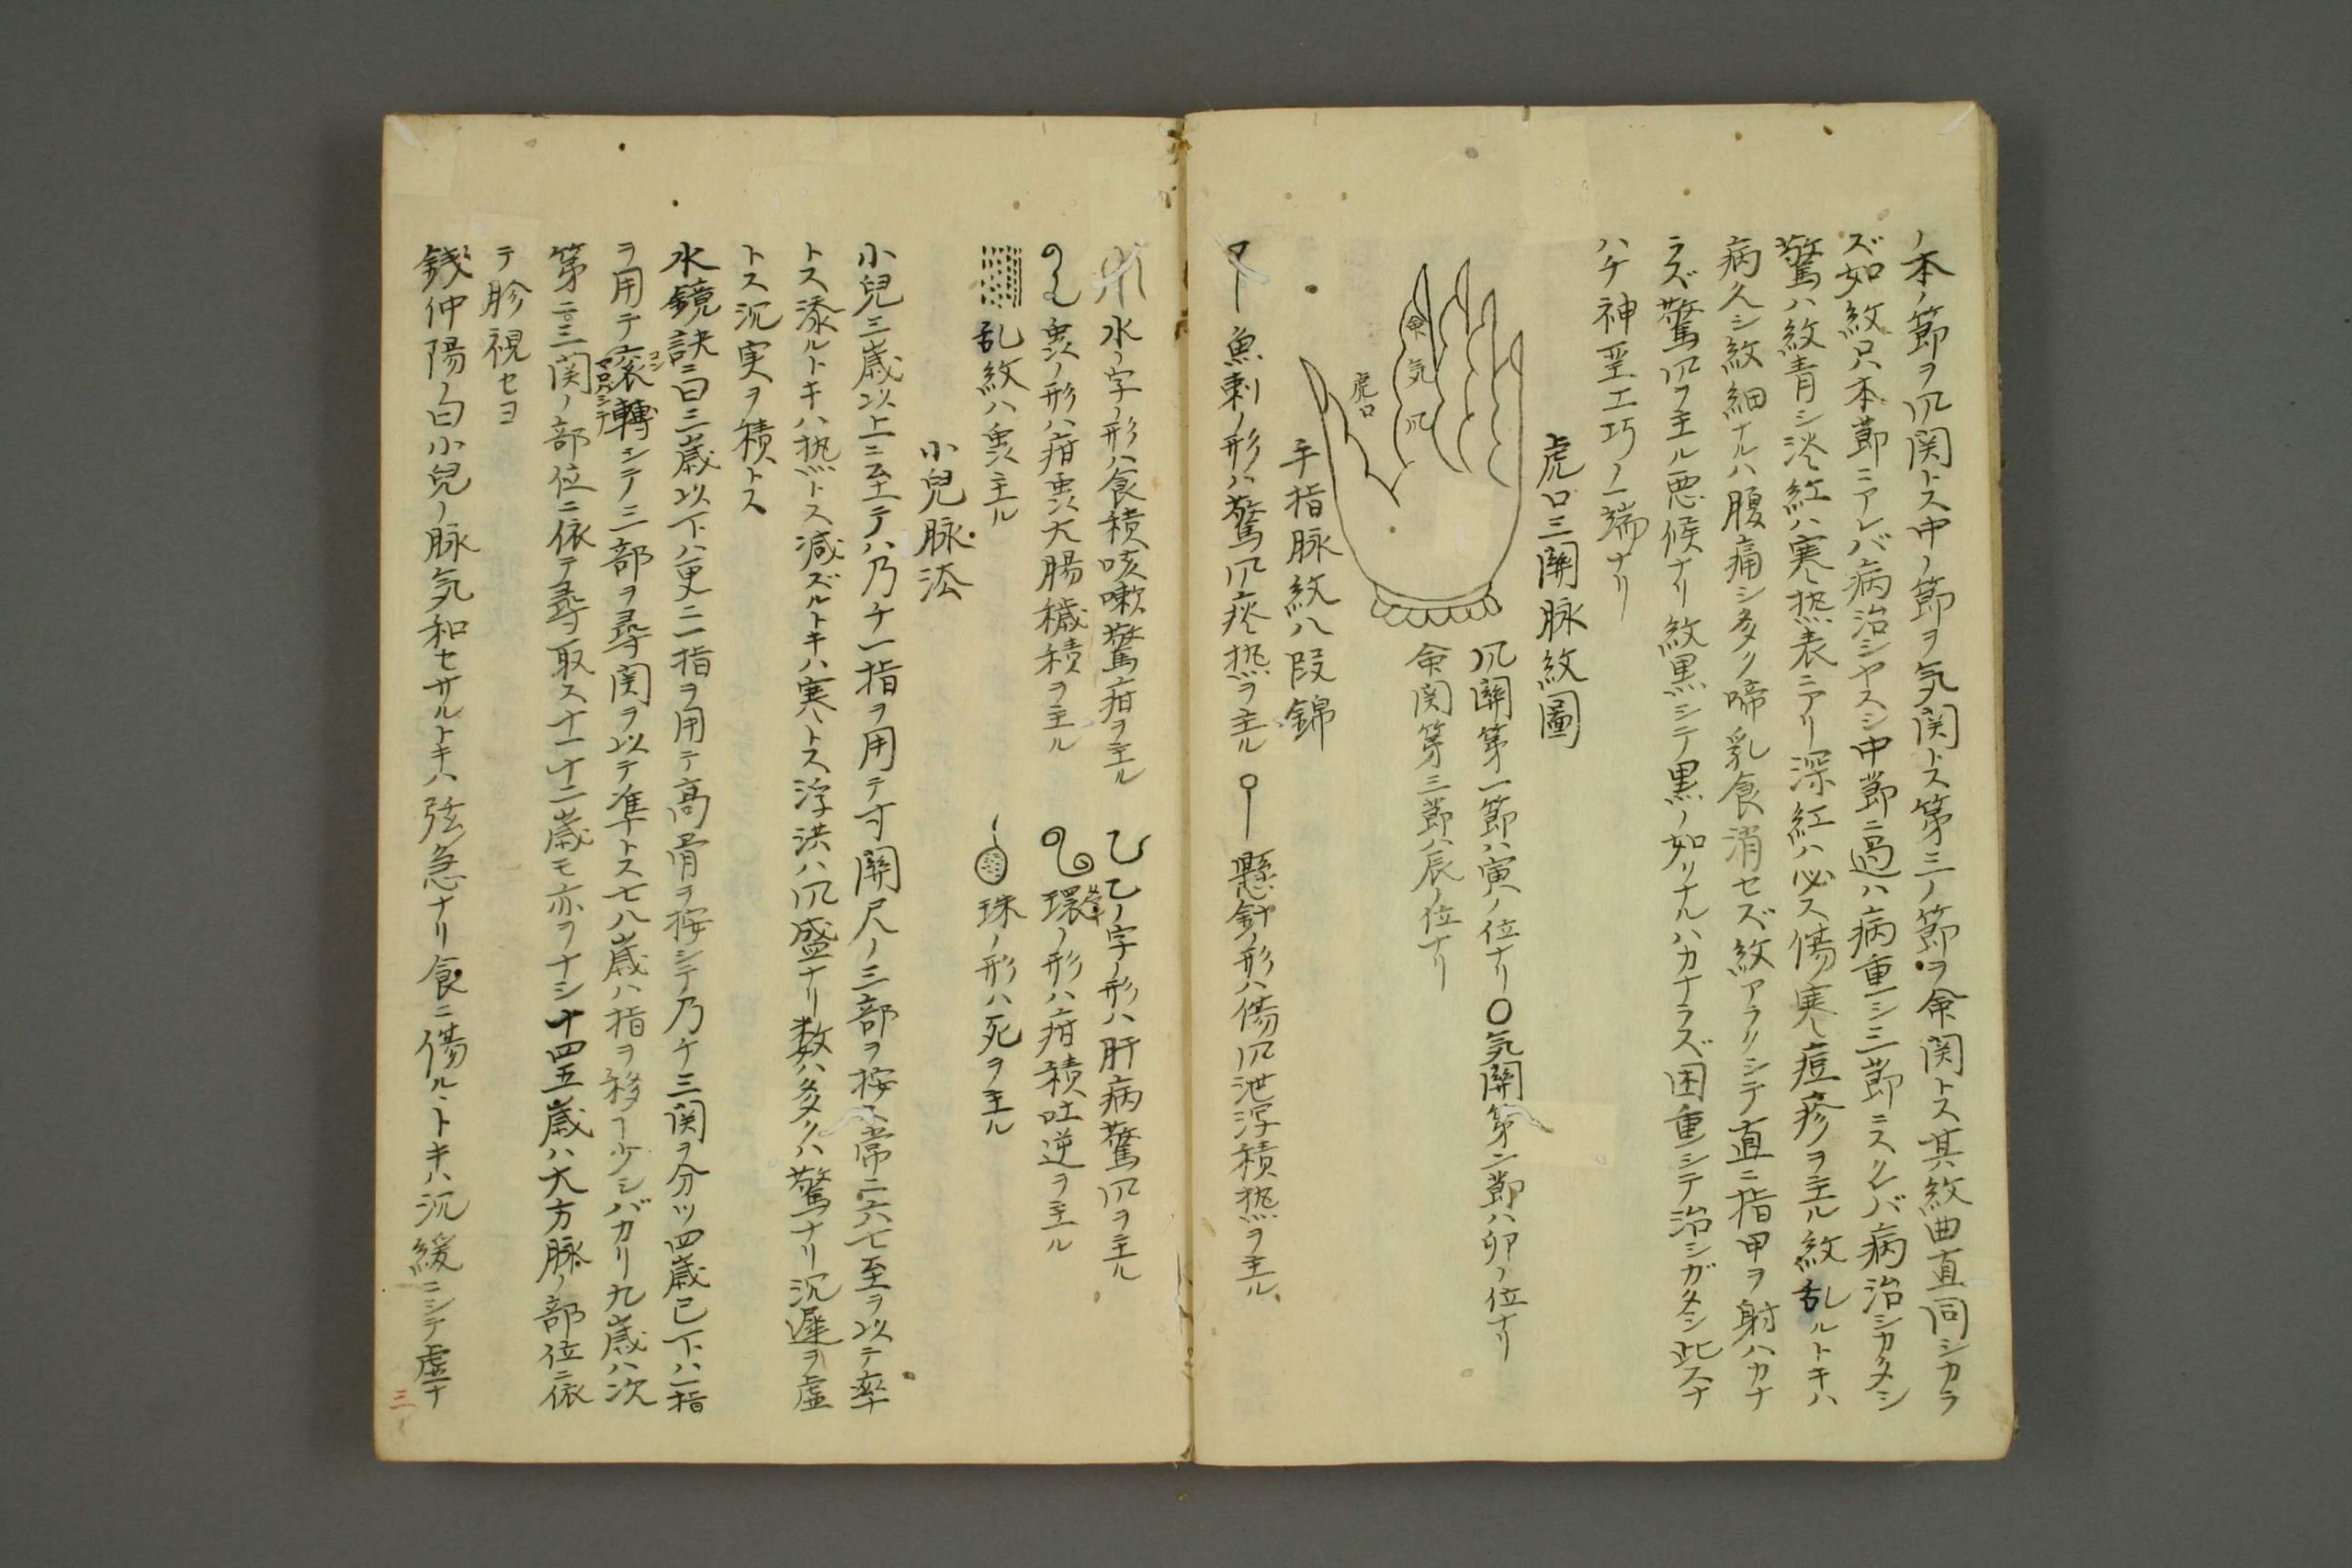 ノ本ノ節ヲ爪関トス中ノ節ヲ気関トス第三ノ節ヲ命関トス其紋曲直同シカラ
ズ如紋只本節ニアレバ病治シヤスシ中節ニ過ハ病重シ三節ニスクレバ病治シカタシ
驚ハ紋青シ淡紅ハ寒熱表ニアリ深紅ハ必ス傷寒痘疹ヲ主ル紋乱ルトキハ
病久シ紋細ナルハ腹痛シ多ク啼乳食消セズ紋アラクシテ直ニ指甲ヲ射ハカナ
ラズ驚爪ヲ主ル悪候ナリ紋黒シテ黒ノ如クナルハカナラズ困重シテ治シガタシ此スナ
ハチ神聖工巧ノ一端ナリ
虎口三關脉紋圖
爪關第一節ハ寅ノ位ナリ〇気關第二節ハ卯ノ位ナリ
命関第三節ハ辰ノ位ナリ
命
気
爪
虎口
手指脉紋八段錦
魚刺ノ形ハ驚爪痰熱ヲ主ル
懸針ノ形ハ傷爪泄瀉積熱ヲ主ル
水ノ字ノ形ハ食積咳嗽驚疳ヲ主ル
乙ノ字ノ形ハ肝病驚爪ヲ主ル
虫ノ形ハ疳虫大腸穢積ヲ主ル
環ノ形ハ疳積吐逆ヲ主ル
乱紋ハ虫ヲ主ル
珠ノ形ハ死ヲ主ル
小兒脉法
小兒三歳以上ニ至テハ乃チ一指ヲ用テ寸關尺ノ三部ヲ按ス常ニ六七至ヲ以テ率
トス添ルトキハ熱トス減ズルトキハ寒トス浮洪ハ爪盛ナリ数ハ多クハ驚ナリ沉遲ヲ虚
トス沉実ヲ積トス
水鏡訣ニ曰三歳以下ハ更ニ一指ヲ用テ高骨ヲ按シテ乃ケ三関ヲ分ツ四歳已下ハ一指
ヲ用テ滚轉シテ三部ヲ尋関ヲ以テ準トス七八歳ハ指ヲ移ー少シバカリ九歳ハ次
第ニ三関ノ部位ニ依テ尋取ス十一十二歳モ亦ヲナシ十四五歳ハ大方脉ノ部位ニ依
テ胗視セヨ
錢仲陽ノ曰小兒ノ脉気和セサルトキハ弦急ナリ食ニ傷ルヽトキハ沉緩ニシテ虚ナ
三